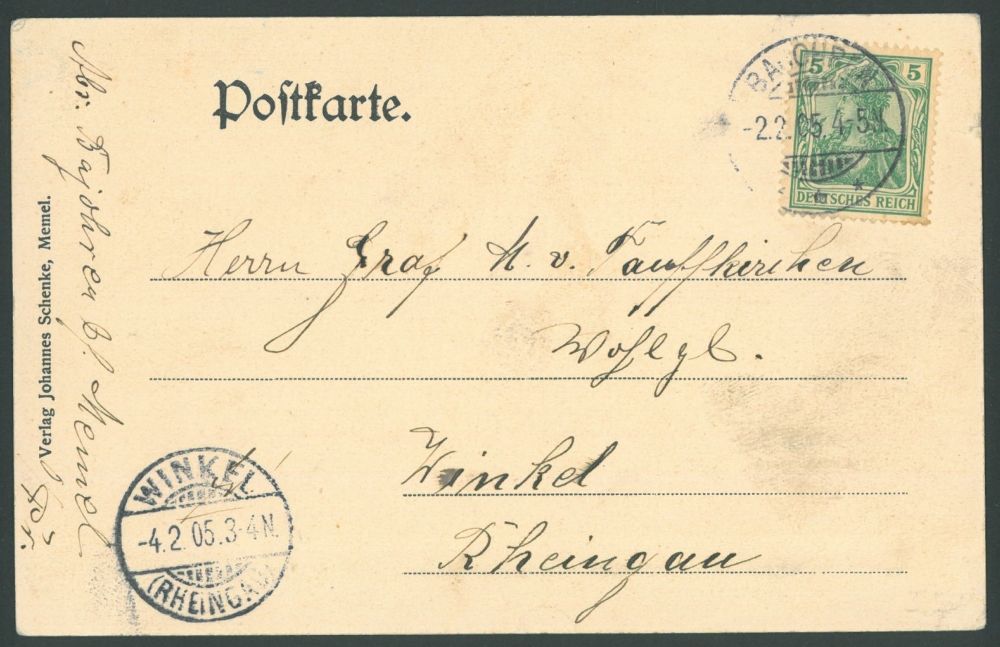 Postkarte.
5 5
DEUTSCHES REICH
-2.2.05.4-5N.
Herrn Graf M. v. Tauffkirchen
Wohlgb.
Winkel
Rheingau
WINKEL
-4.2.05.3-4N.
(RHEINGAU)
Verlag Johannes Schenke, Memel.
Abs. Bajohren b/ Memel